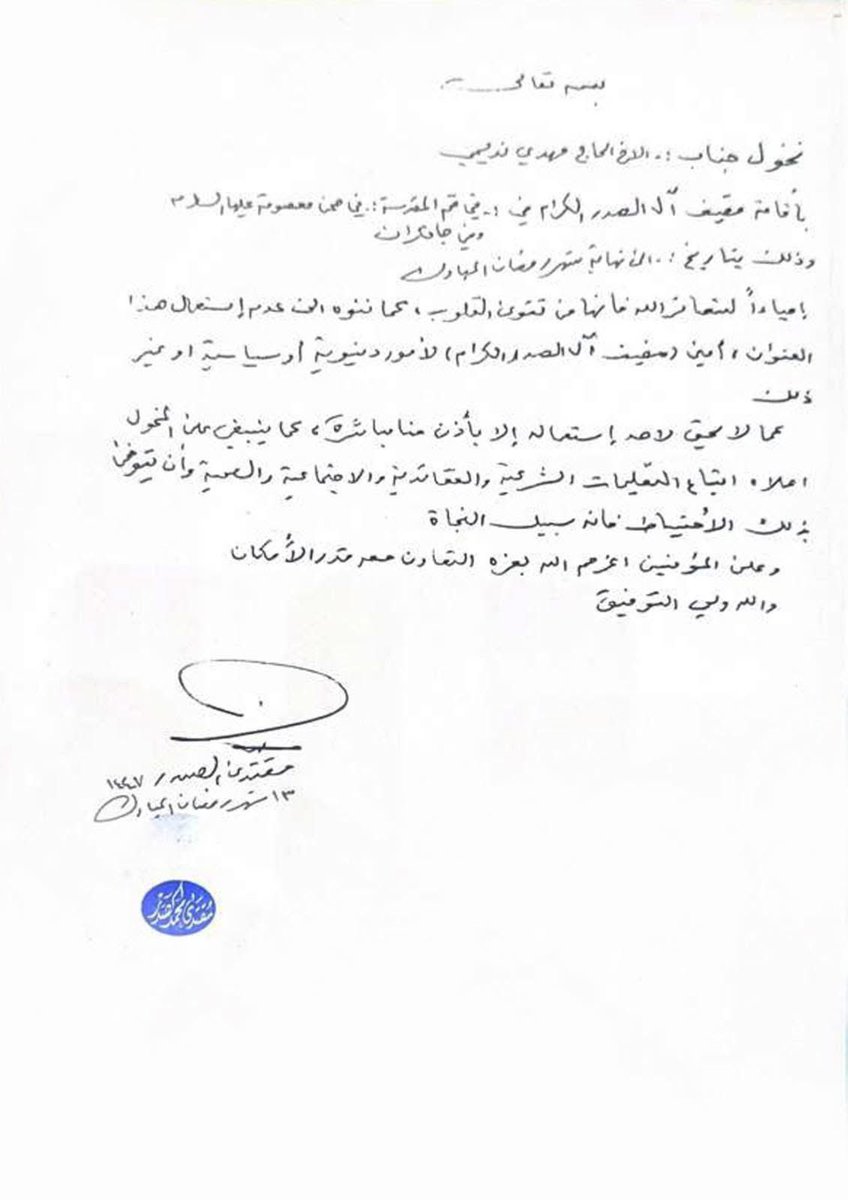 بسمه تعالى
نخول جناب :. الاخ الحاج مهدي نديمي
بأقامة مضيف آل الصدر الكرام في :. في قم المقدسة :. في صحن معصومة عليها السلام
وفي جامكران
وذلك بتاريخ :. الى نهاية شهر رمضان المبارك
إحياءاً لشعائر الله فأنها من تقوى القلوب ، كما ننوه الى عدم إستعمال هذا
العنوان ، أعني (مضيف آل الصدر الكرام) لأمور دنيوية أو سياسية او غير
ذلك
كما لا يحق لاحد إستعماله إلا بأذن منا مباشرة ، كما ينبغي على المخول
اعلاه اتباع التعليمات الشرعية والعقائدية والاجتماعية والصحية وأن يتوخى
بذلك الأحتياط فانه سبيل النجاة
وعلى المؤمنين اعزهم الله بعزه التعاون معه قدر الأمكان
والله ولي التوفيق
مقتدى الصدر ١٤٤٧
١٣ شهر رمضان المبارك
مقتدى محمد الصدر